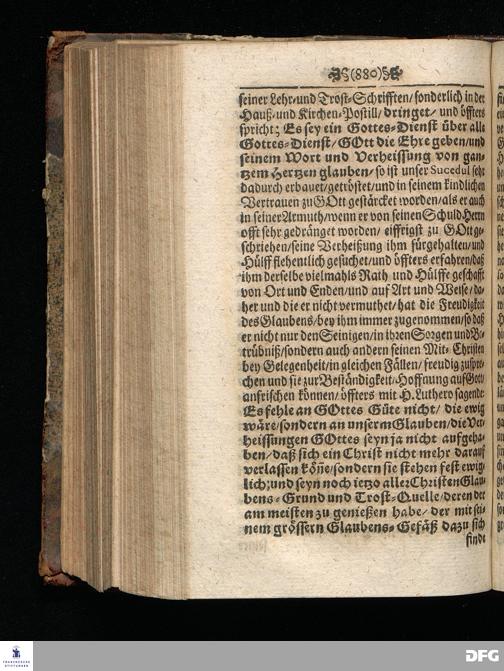 (880)
seiner Lehr-und Trost-Schrifften/sonderlich in der
Hauß-und Kirchen-Postill/dringet/ und öffters
spricht; Es sey ein Gottes-Dienst über alle
Gottes-Dienst/ GOtt die Ehre geben/und
seinem Wort und Verheissung von gan-
tzem Hertzen glauben/ so ist unser Sucedul sehr
dadurch erbauet/getröstet/und in seinem kindlichen
Vertrauen zu GOtt gestärcket worden/als er auch
in seiner Armuth/wenn er von seinen Schuld Herrn
offt sehr gedränget worden/ eiffrigst zu GOtt ge-
schriehen/seine Verheißung ihm fürgehalten/und
Hülff flehentlich gesuchet/und öffters erfahren/daß
ihm derselbe vielmahls Rath und Hülffe geschafft
von Ort und Enden/und auf Art und Weise/da-
her und die er nicht vermuthet/hat die Freudigkeit
des Glaubens/bey ihm immer zugenommen/so daß
er nicht nur den Seinigen/in ihren Sorgen und Be-
trübniß/sondern auch andern seinen Mit-Christen
bey Gelegenheit/in gleichen Fällen/ freudig zuspre-
chen und sie zur Beständigkeit/Hoffnung auf Gott/
anfrischen können/ öffters mit H. Luthero sagende:
Es fehle an GOttes Güte nicht/ die ewig
wäre/sondern an unserm Glauben/die Ver-
heissungen GOttes seyn ja nicht aufgeha-
ben/daß sich ein Christ nicht mehr darauf
verlassen köñe/sondern sie stehen fest ewig-
lich;und seyn noch ietzo aller Christen Glau-
bens-Grund und Trost-Quelle/deren der
am meisten zu genießen habe/ der mit sei-
nem grössern Glaubens-Gefäß dazu sich
findt
FRANCKESCHE
STIFTUNGEN
DFG